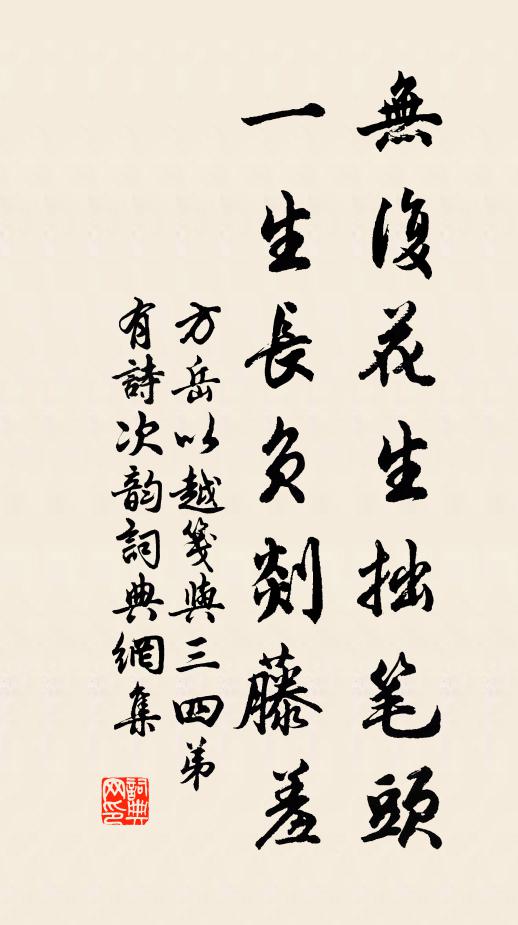 無復花生拙笔頭
一生長负剡藤羞
方岳以越箋與三四弟
有詩次韵詞典網集
詞典网印